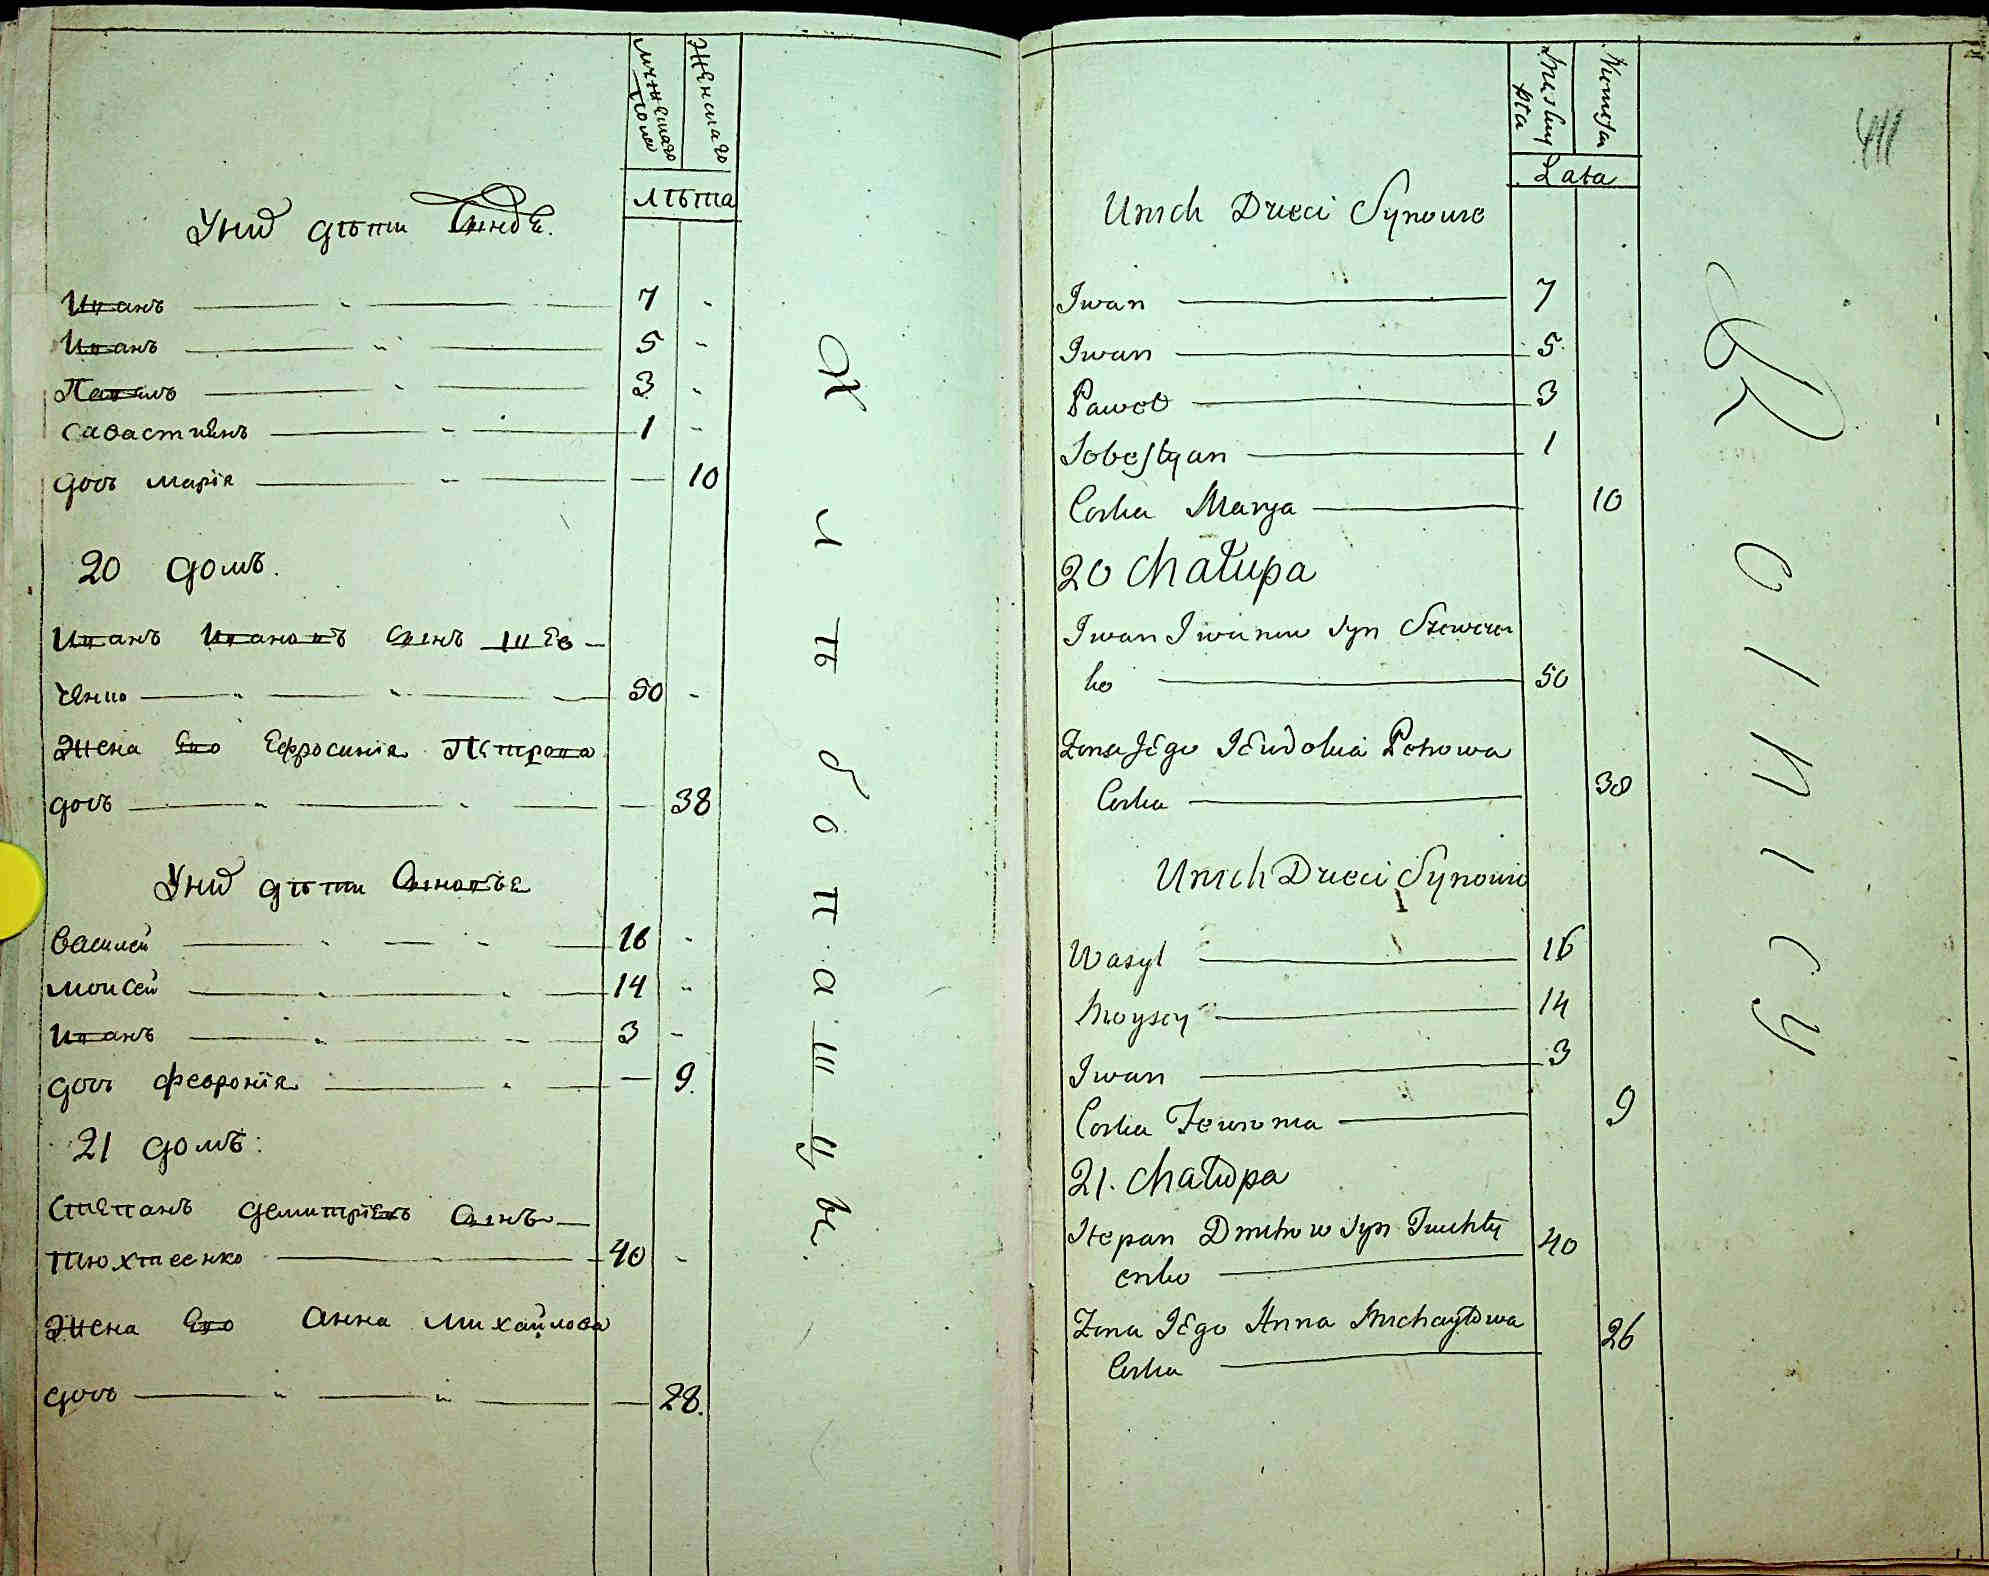 мужескаго пола
женскаго
лѣта
Уних дѣти Сынове.
Иванъ 7 -
Иванъ 5 -
Павелъ 3 -
Савастиянъ 1 -
дочь марія — 10
20 домъ.
Иванъ Ивановъ Сынъ Шев-
ченко 50 -
Жена Его Ефросинія Петрова
дочь — 38
Уних дѣти Сыновъе
Василей 16 -
моисей 14 -
Иванъ 3 -
дочь февронія — 9.
21 домъ:
Степанъ демитріевъ Сынъ
тюхтеенко 40 -
Жена Его Анна михайлова
дочь — 28.
Хлѣбопашцы.
Męskiey płci
Niewieścia
Lata
411
Unich Dzieci Synowie
Iwan 7
Iwan 5
Paweł 3
Sobestyan 1
Corka Marya 10
20 Chałupa
Iwan Iwanow Syn Szewczen
ko 50
Zona Jego Jewdokia Petrowa
Corka 38
Unich Dzieci Synowie
Wasyl 16
Moysey 14
Iwan 3
Corka Fewronia 9
21. Chałupa
Stepan Dmitrow Syn Tiuchty
enko 40
Zona Jego Anna Michayłowa
Corka 26
Rolnicy